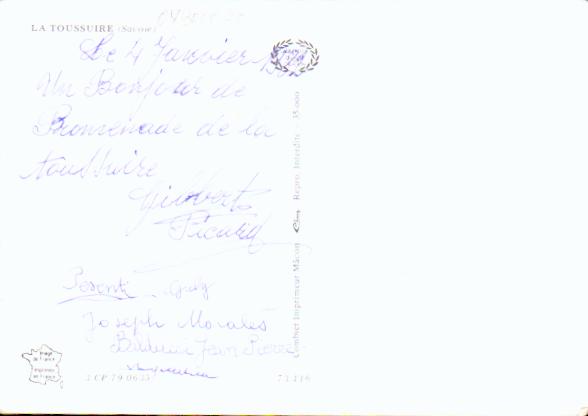 LA TOUSSUIRE (Savoie)
Le 4 Janvier
Un Bonjour de
Promenade de la
toussuire
Gilbert
Picard
Pesenti Guy
Joseph Morales
Jean Pierre
Image de France
Imprimée de France
2 CP 79 0635
73.116
Combier Imprimeur Mâcon Cim Repro. Interdite 35 000